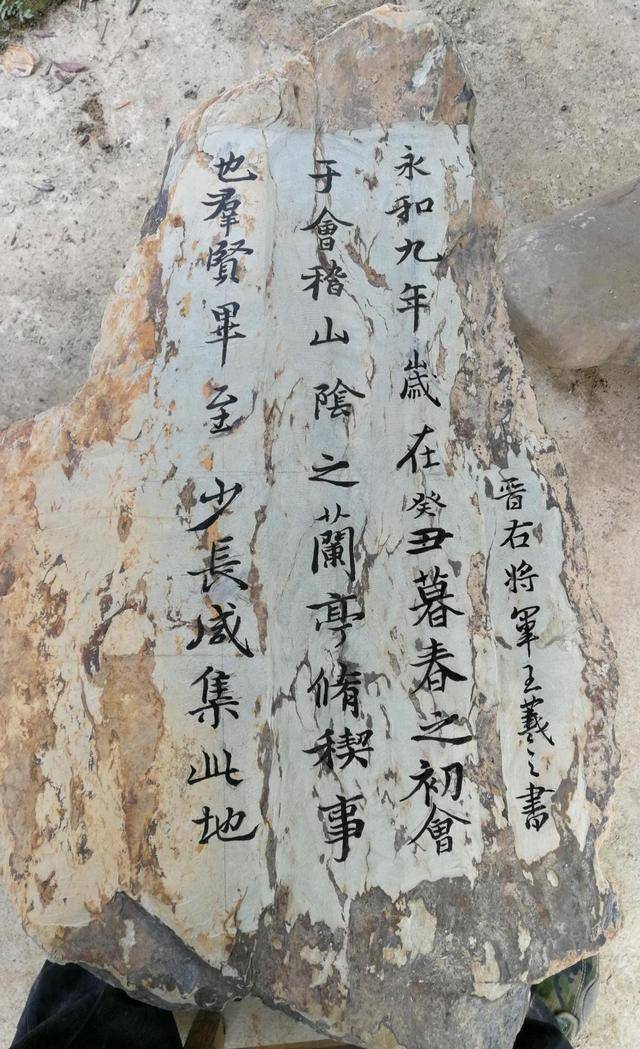 晉右将軍王羲之書
永和九年歳在癸丑暮春之初會
于會稽山陰之蘭亭脩稧事
也羣賢畢至少長咸集此地